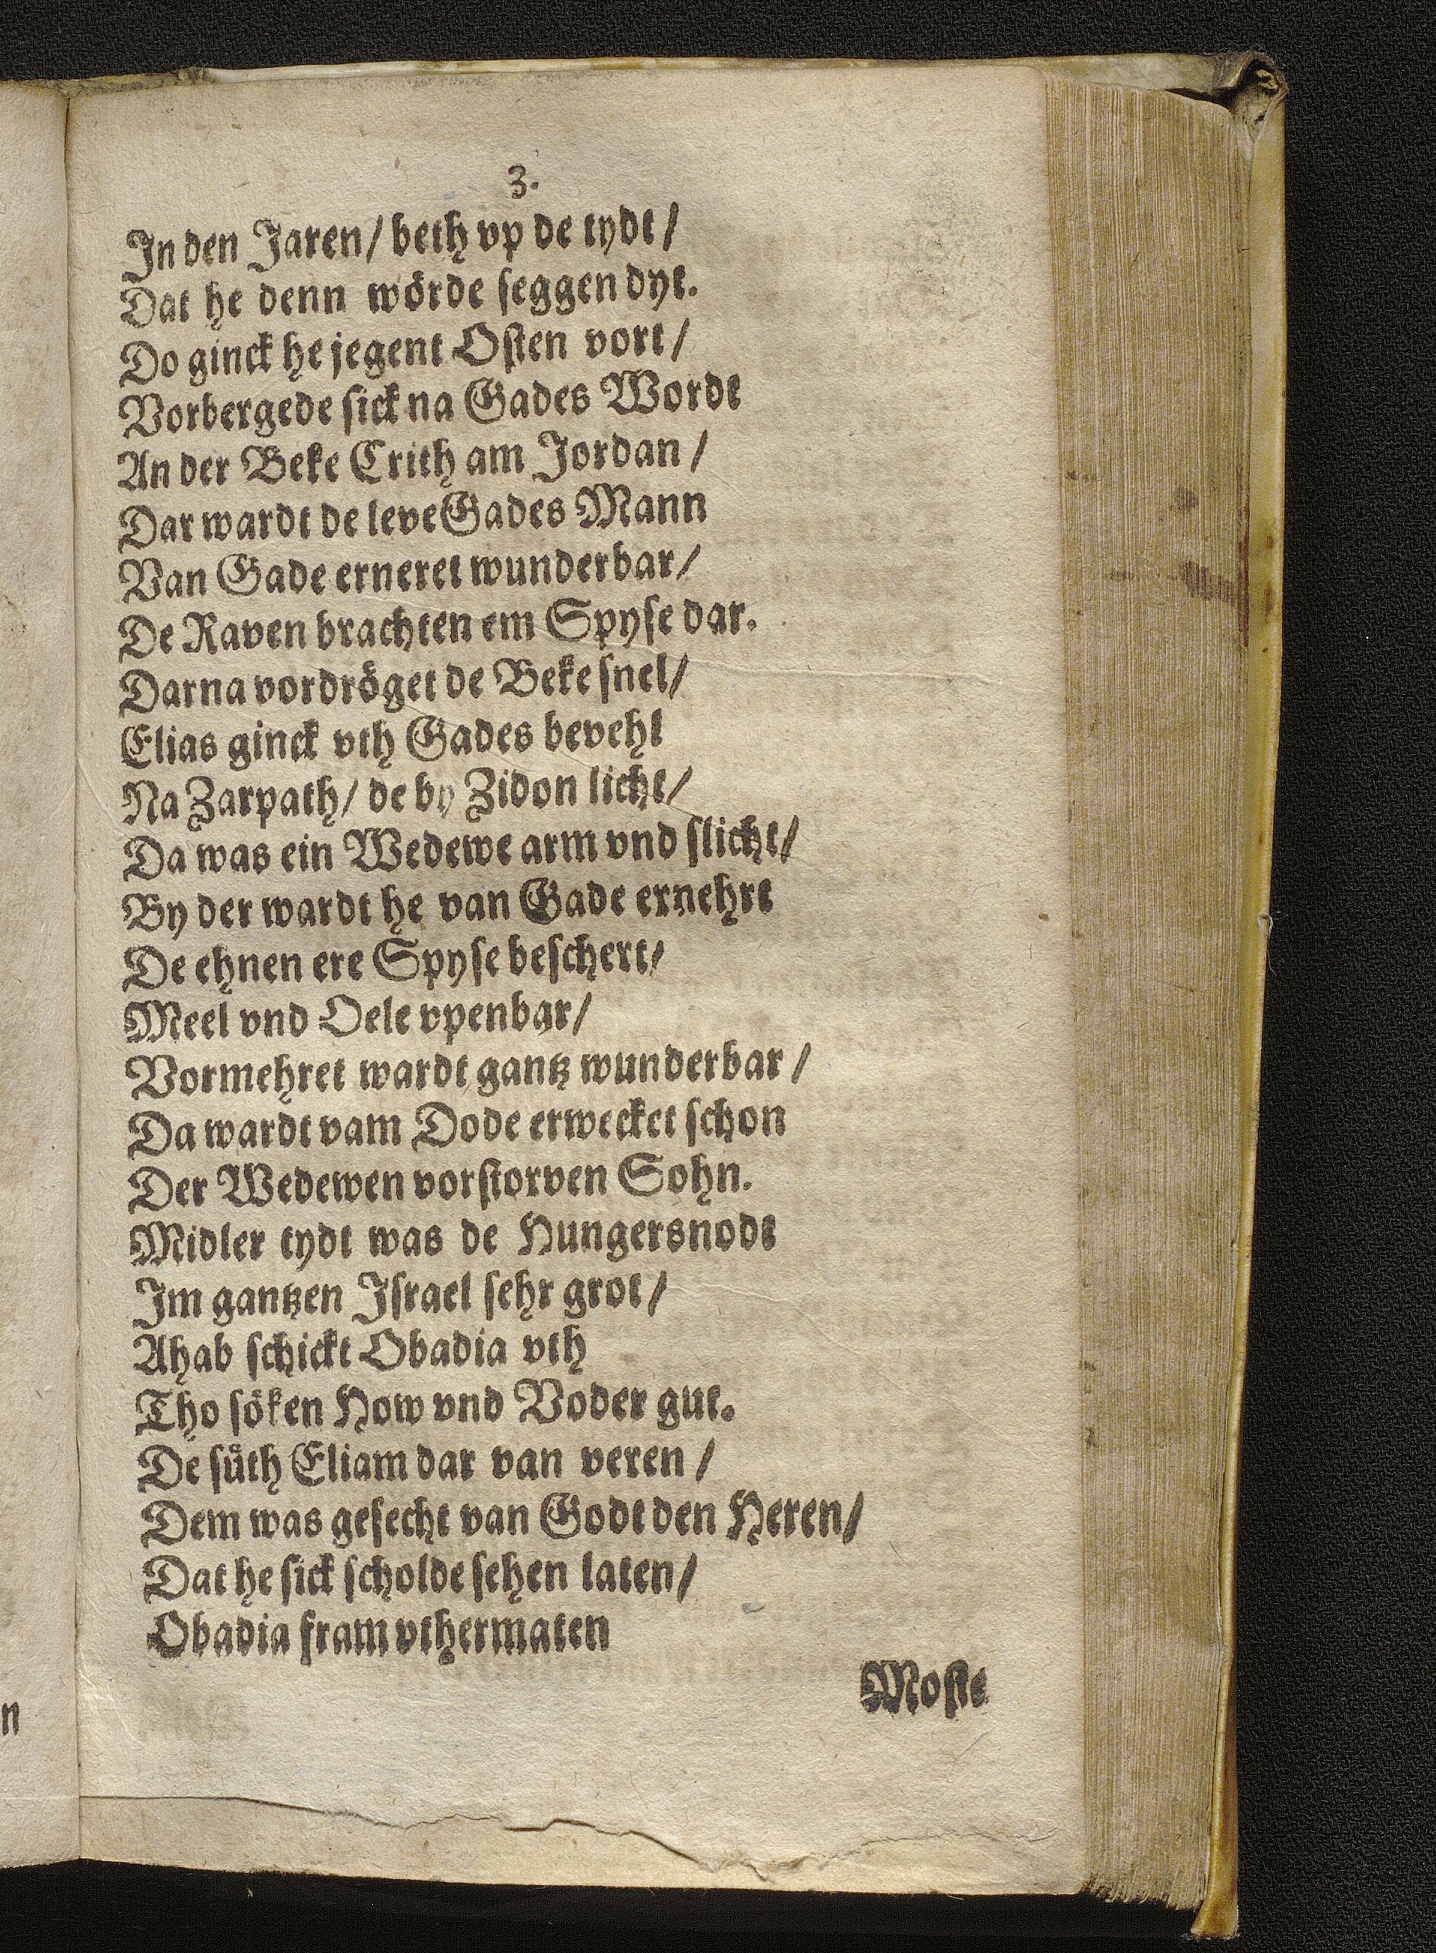 3.
In den Jaren / beth vp de tydt /
Dat he denn wörde seggen dyt.
Do ginck he jegent Osten vort /
Vorbergede sick na Gades Wordt
An der Beke Crith am Jordan /
Dar wardt de leve Gades Mann
Van Gade erneret wunderbar /
De Raven brachten em Spyse dar.
Darna vordröget de Beke snel /
Elias ginck vth Gades bevehl
Na Zarpath / de by Zidon licht /
Da was ein Wedewe arm vnd slicht /
By der wardt he van Gade ernehrt
De ehnen ere Spyse beschert /
Meel vnd Oele vpenbar /
Vormehret wardt gantz wunderbar /
Da wardt vam Dode erwecket schon
Der Wedewen vorstorven Sohn.
Midler tydt was de Hungersnodt
Im gantzen Israel sehr grot /
Ahab schickt Obadia vth
Tho söken How vnd Voder gut.
De süth Eliam dar van veren /
Dem was gesecht van Godt den Heren /
Dat he sick scholde sehen laten /
Obadia fram vthermaten
Moste
n